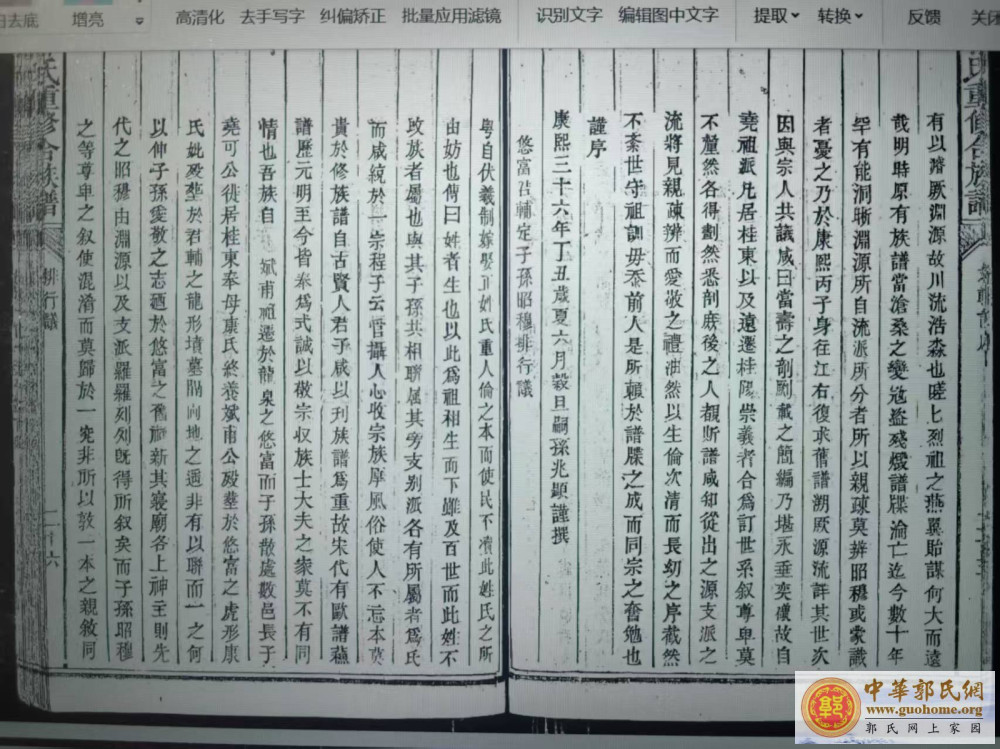 增亮
高清化
去手写字
纠偏矫正
批量应用滤镜
识别文字
编辑图中文字
提取
转换
反馈
有以濟厥淵源故川流浩淼也嗟匕烈祖之燕翼貽謀何大而遠
哉明時原有族譜當滄桑之變殘燬譜牒淪亡迄今數十年
罕有能洞晰淵源所自流派所分者所以親疎莫辨昭穆或棠識
者憂之乃於康熙丙子身往江右復求舊譜溯厥源流詳其世次
因與宗人共議咸曰當壽之剞劂載之簡編乃堪永垂奕禩故自
堯祖派凡居桂東以及遠遷桂陽崇義者合為訂世系叙尊卑莫
不釐然各得劃然悉剖庶後之人覩斯譜咸知從出之源支派之
流將見親疎辨而愛敬之禮油然以生倫次清而長幼之序截然
不紊世守祖訓毋忝前人是所頼於譜牒之成而同宗之奮勉也
謹序
康熙三十六年丁丑歲夏六月穀旦嗣孫兆顯謹撰
悠富君輔定子孫昭穆排行議
粤自伏羲制嫁娶正姓氏重人倫之本而使民不凟此姓氏之所
由妨也傳曰姓者生也以此為祖相生而下雖及百世而此姓不
改族者屬也與其子孫共相聯属其旁支别派各有所屬者為氏
而咸統於一宗程子云管攝人心收宗族厚風俗使人不忘本莫
貴於修族譜自古賢人君子咸以刋族譜爲重故宋代有歐譜蘓
譜歷元明至今皆奉爲式誠以敬宗収族士大夫之家莫不有同
情也吾族自 斌甫遷於龍泉之悠富而子孫散處敷邑長子
堯可公徙居桂東奉母康氏終養斌甫公殁塟於悠富之虎形康
氏妣殁塟於君輔之龍形墳墓隔两地之遥非有以聯而一之何
以伸子孫愛敬之志廼於悠富之舊祠新其寢廟各上神主則先
代之昭穆由淵源以及支派羅羅列列旣得所叙矣而子孫昭穆
之等尊卑之叙使混淆而莫歸於一究非所以敦一本之親敘同
氏重修合族譜
排行議
中華郭氏網
www.guohome.org
郭氏网上家园